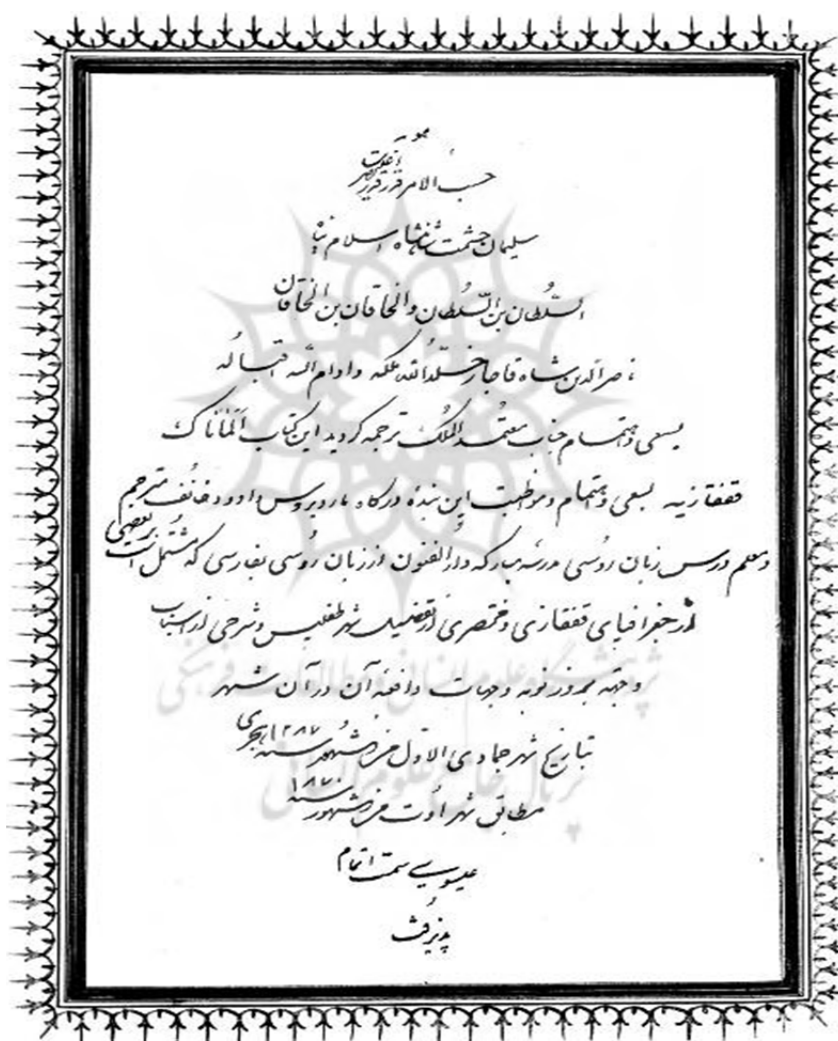 هو
حسب الامر قدر قدرت
سلیمان حشمت شاهنشاه اسلام پناه
السُّلطان بن السُّلطان والخاقان بن الخاقان
ناصرالدین شاه قاجار خلّد الله ملکه وادام الله اقباله
بسعی واهتمام جناب معتمد الملک ترجمه گردید این کتاب المناناک
قفقازیه بسعی واهتمام ومواظبت این بندهٔ درگاه مارديروس داودخانُف مترجم
ومعلم درس زبان روُسی مدرسهٔ مبارکه دار الفنون از زبان روُسی بفارسی که مُشتمل است بر بعضی
از جغرافیای قفقازی ومختصری از تفضیل شهر طفلیس وشرحی از اسباب
وجهة بروز نوبه وجهات دافعهٔ آن در آن شهر
بتاریخ شهر جمادی الاوّل من شهور سنه ۱۲۸۷ هجری
مطابق شهر اوُت من شهور سنه ۱۸۷۰
عیسوی سمت اتمام
پذیرفت
پژوهشگاه علوم انسانی و مطالعات فرهنگی
پرتال جامع علوم انسانی